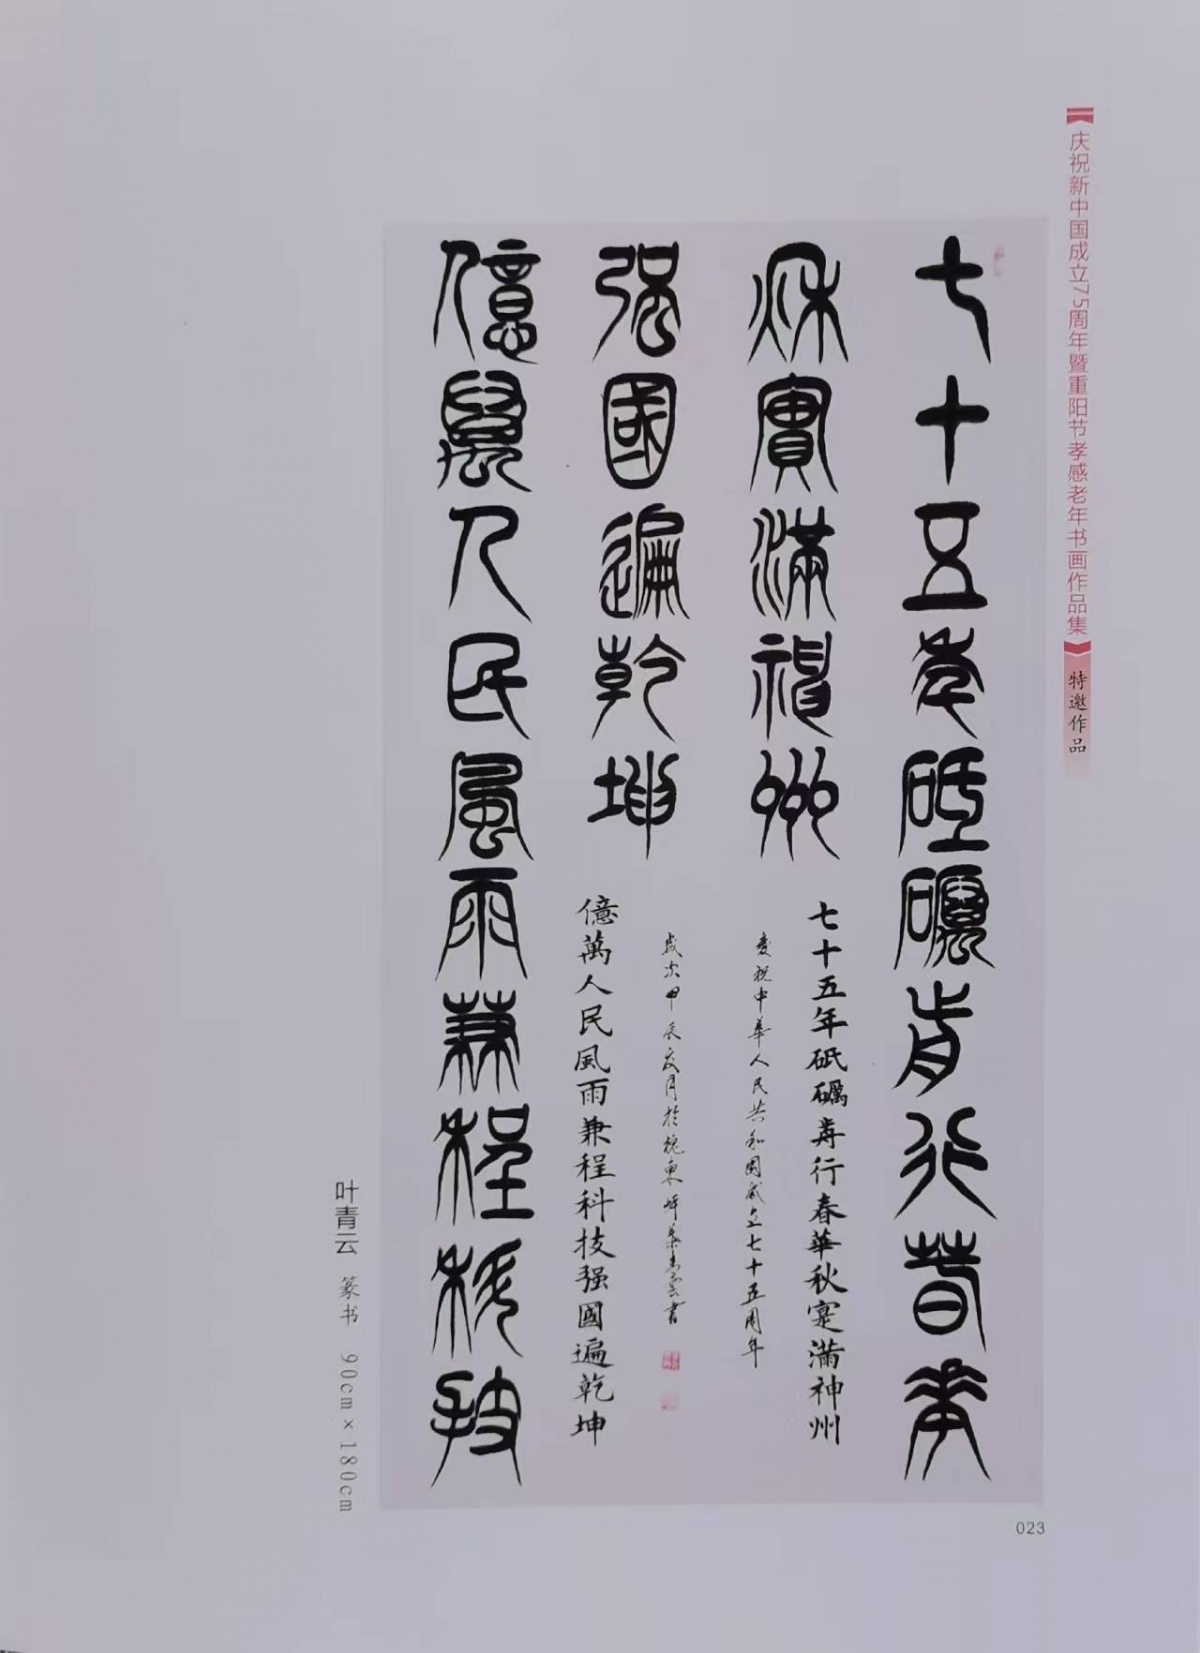 庆祝新中国成立75周年暨重阳节孝感老年书画作品集
特邀作品
七十五年砥礪前行春華
秋實滿神州
强國遍乾坤
億萬人民風雨兼程科技
七十五年砥礪歬行春華秋寔满神州
慶祝中華人民共和國成立七十五周年
歲次甲辰夏月於槐東 葉青雲書
億萬人民風雨兼程科技强國遍乾坤
叶青云 篆书 90cm×180cm
023